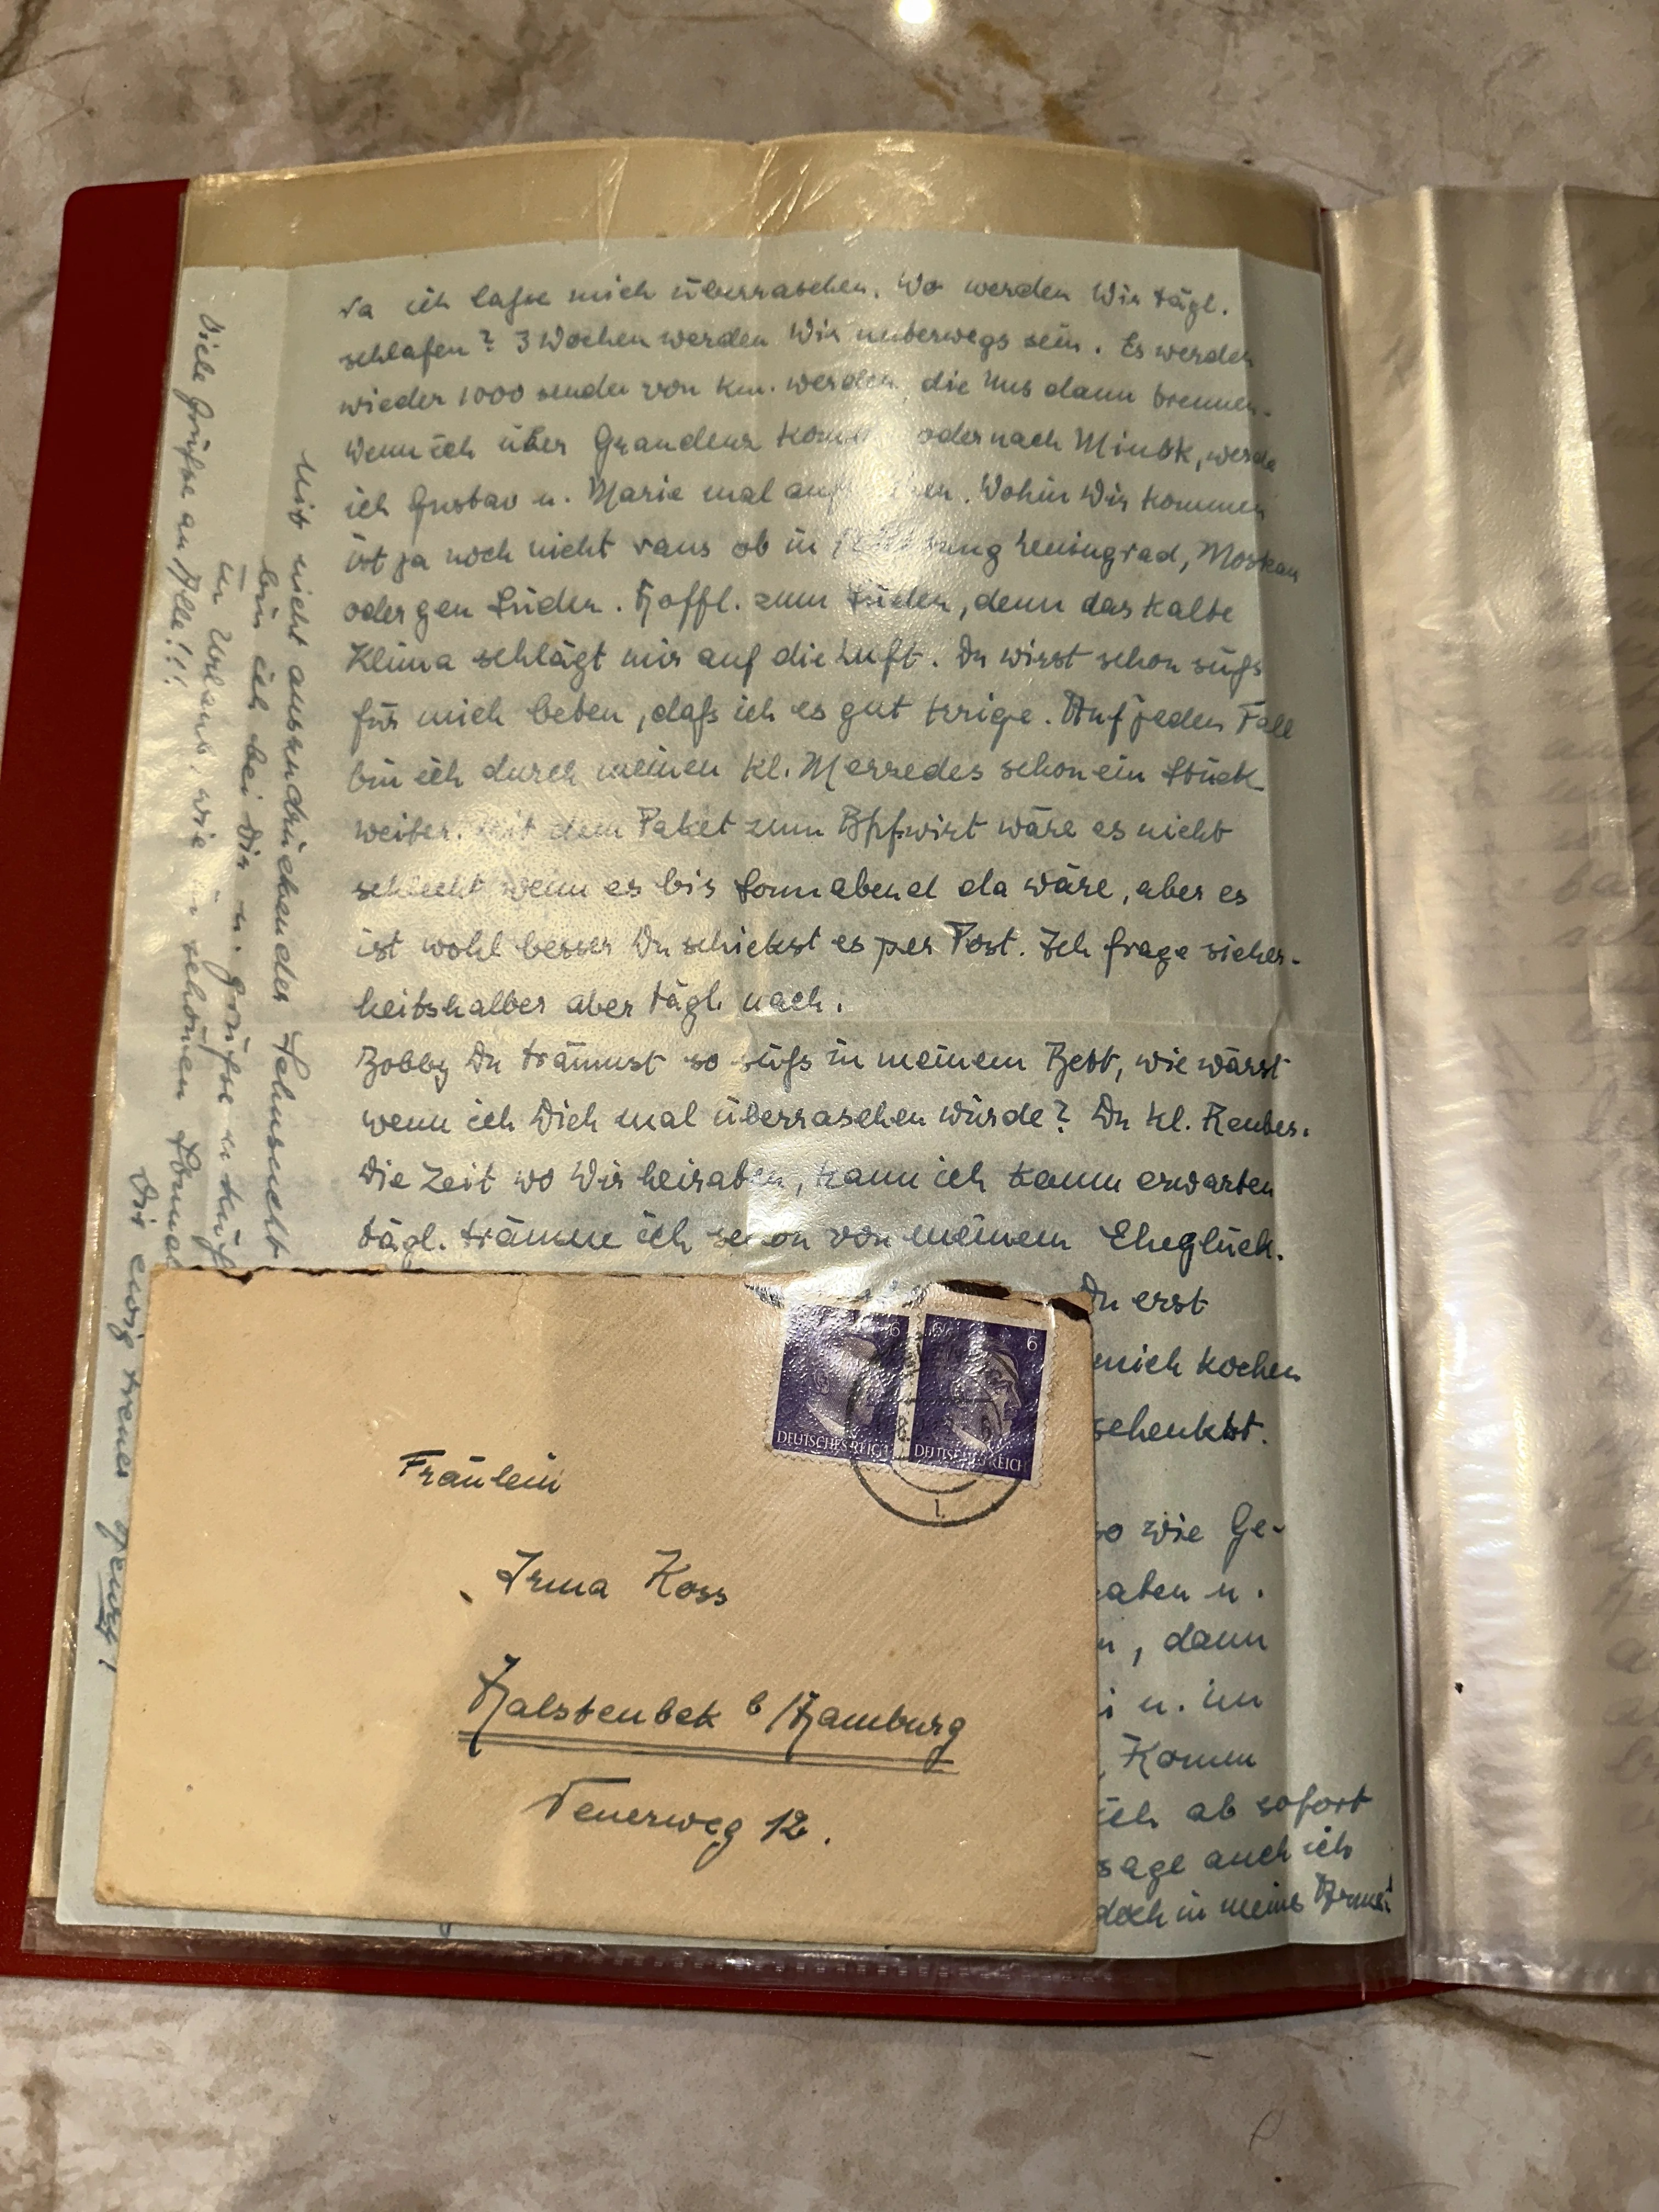 Na ich lasse mich überraschen. Wo werden Wir tägl.
schlafen? 3 Wochen werden Wir unterwegs sein. Es werden
wieder 1000 sende von Km. werden, die Uns dann trennen.
Wenn ich über Graudenz komme oder nach Minsk, werde
ich Gustav u. Marie mal auf. Wohin Wir kommen
ist ja noch nicht raus ob in Leningrad, Moskau
oder gen Süden. Hoffl. zum Süden, denn das kalte
Klima schlägt mir auf die Luft. Du wirst schon süß
für mich beten, daß ich es gut krige. Auf jeden Fall
bin ich durch meinen Kl. Merzedes schon ein Stück
weiter. Mit dem Paket zum Bhfwirt wäre es nicht
schlecht wenn es bis Sonnabend da wäre, aber es
ist wohl besser Du schickst es per Post. Ich frage sicher-
heitshalber aber tägl. nach.
Bobby Du träumst so süß in meinem Bett, wie wärst
wenn ich Dich mal überraschen würde? Du kl. Räuber.
Die Zeit wo Wir heiraten, kann ich kaum erwarten
tägl. träume ich schon von meinem Eheglück.
Du erst
mich kochen
schenkst.
so wie Ge-
aben u.
n, dann
i u. im
, Komm
ich ab sofort
sage auch ich
doch in meine Arme!
Mit nicht auszudrückender Sehnsucht
bin ich bei Dir u. grüße u. küß
im Urlaub, wie im schönen
Dir ewig treuer
Viele Grüße an Alle!!!
6 6
6
DEUTSCHES REICH
DEUTSCHES REICH
Fräulein
Irma Koss
Halstenbek b/Hamburg
Neuerweg 12.